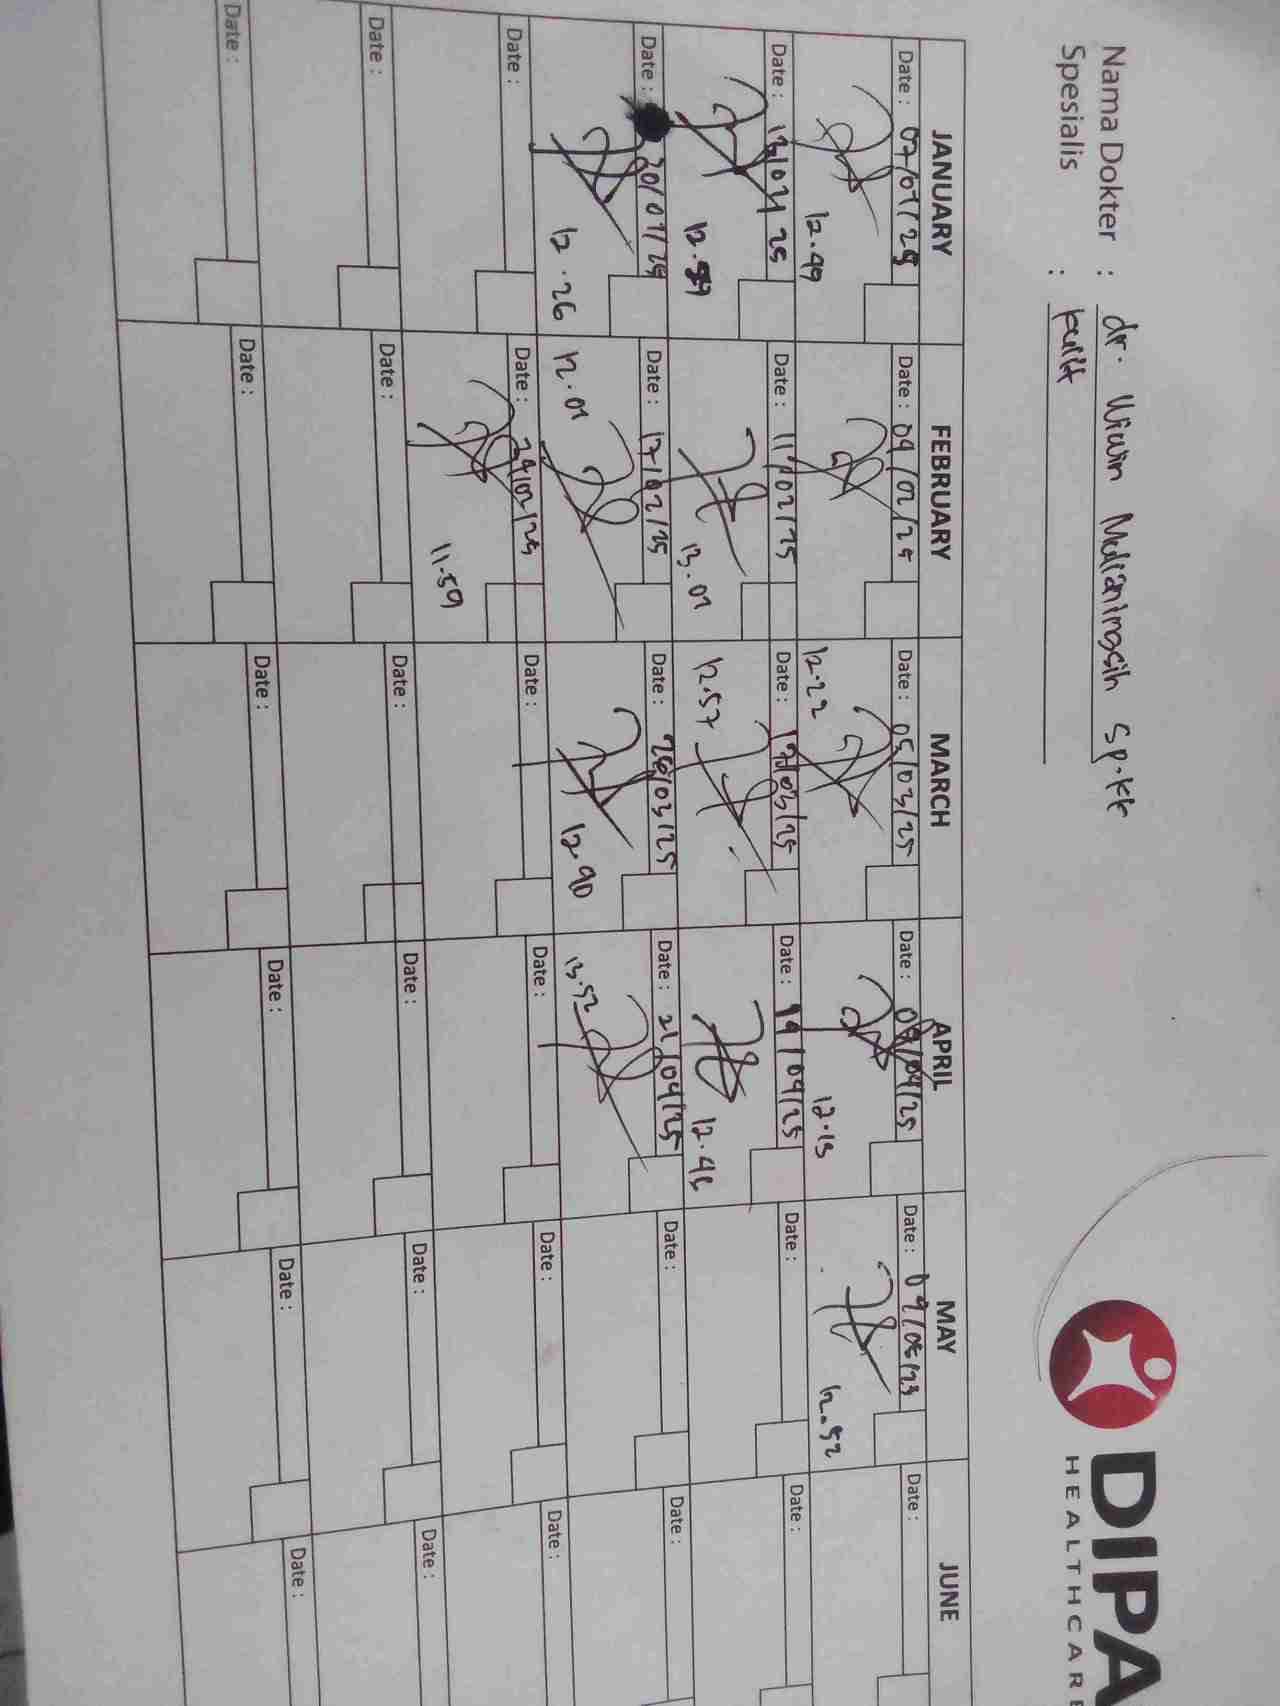 Nama Dokter : dr. Wiwin Mulianingsih Sp.KK
Spesialis : kulit
DIPA
HEALTHCARE
JANUARY FEBRUARY MARCH APRIL MAY JUNE
Date : 07/01/25 Date : 04/02/25 Date : 05/03/25 Date : 09/04/25 Date : 09/05/25 Date :
12.49 12.22 12.13 12.52
Date : 13/01/25 Date : 11/02/25 Date : 12/03/25 Date : 14/04/25 Date : Date :
12.59 13.01 12.57 12.45
Date : 20/01/25 Date : 17/02/25 Date : 26/03/25 Date : 21/04/25 Date : Date :
12.26 12.01 12.40 13.52
Date : Date : 24/02/25 Date : Date : Date : Date :
11.59
Date : Date : Date : Date : Date : Date :
Date : Date : Date : Date : Date : Date :